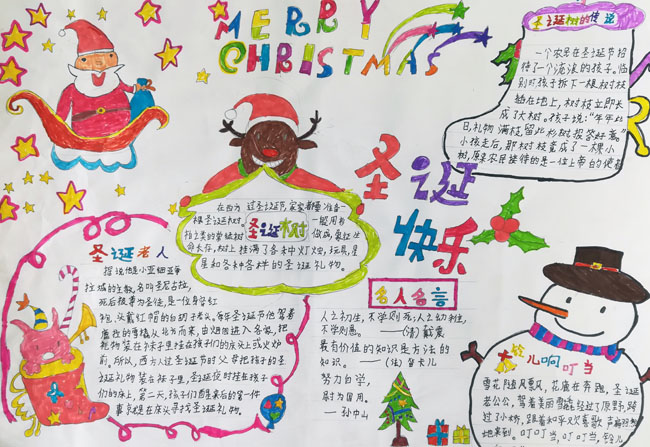 MERRY
CHRISTMAS
圣诞树的传说
一个农民在圣诞节招
待了一个流浪的孩子。临
别时孩子折下一根树枝
插在地上,树枝立即长
成了大树。孩子说:“年年此
日,礼物满枝,留此杉树报答好意。”
小孩走后,那树枝竟成了一棵小
树,原来农民接待的是一位上帝的使者
圣诞
快乐
在西方过圣诞节,家家都要准备一
棵圣诞树,
圣诞树
一般用杉
柏之类的常绿树
做成,象征生
命长存,树上挂满了各种灯烛,玩具,星
星和各种各样的圣诞礼物。
圣诞老人
据说他是小亚细亚等
拉城的主教,名叫圣尼古拉,
死后被尊为圣徒,是一位身穿红
袍,头戴红帽的白胡子老头。每年圣诞节他驾着
鹿拉的雪橇从北方而来,由烟囱进入各家,把
礼物装在袜子里挂在孩子们的床头上或火炉
前。所以,西方人过圣诞节时父母把孩子的圣
诞礼物装在袜子里,圣诞夜时挂在孩子
们的床上,第二天,孩子们醒来后的第一件
事就是在床头寻找圣诞礼物。
名人名言
人之初生,不学则死;人之幼稚,
不学则愚。 ——(清)戴震
最有价值的知识是方法的
知识。 ——(法)笛卡儿
努力向学,
蔚为国用。
——孙中山
铃儿响叮当
雪花随风飘,花鹿在奔跑,圣诞
老公公,驾着美丽雪橇,经过了原野,跨
过了小桥,跟着和平欢喜歌声翩然的
地来到,叮叮当,叮叮当,铃儿